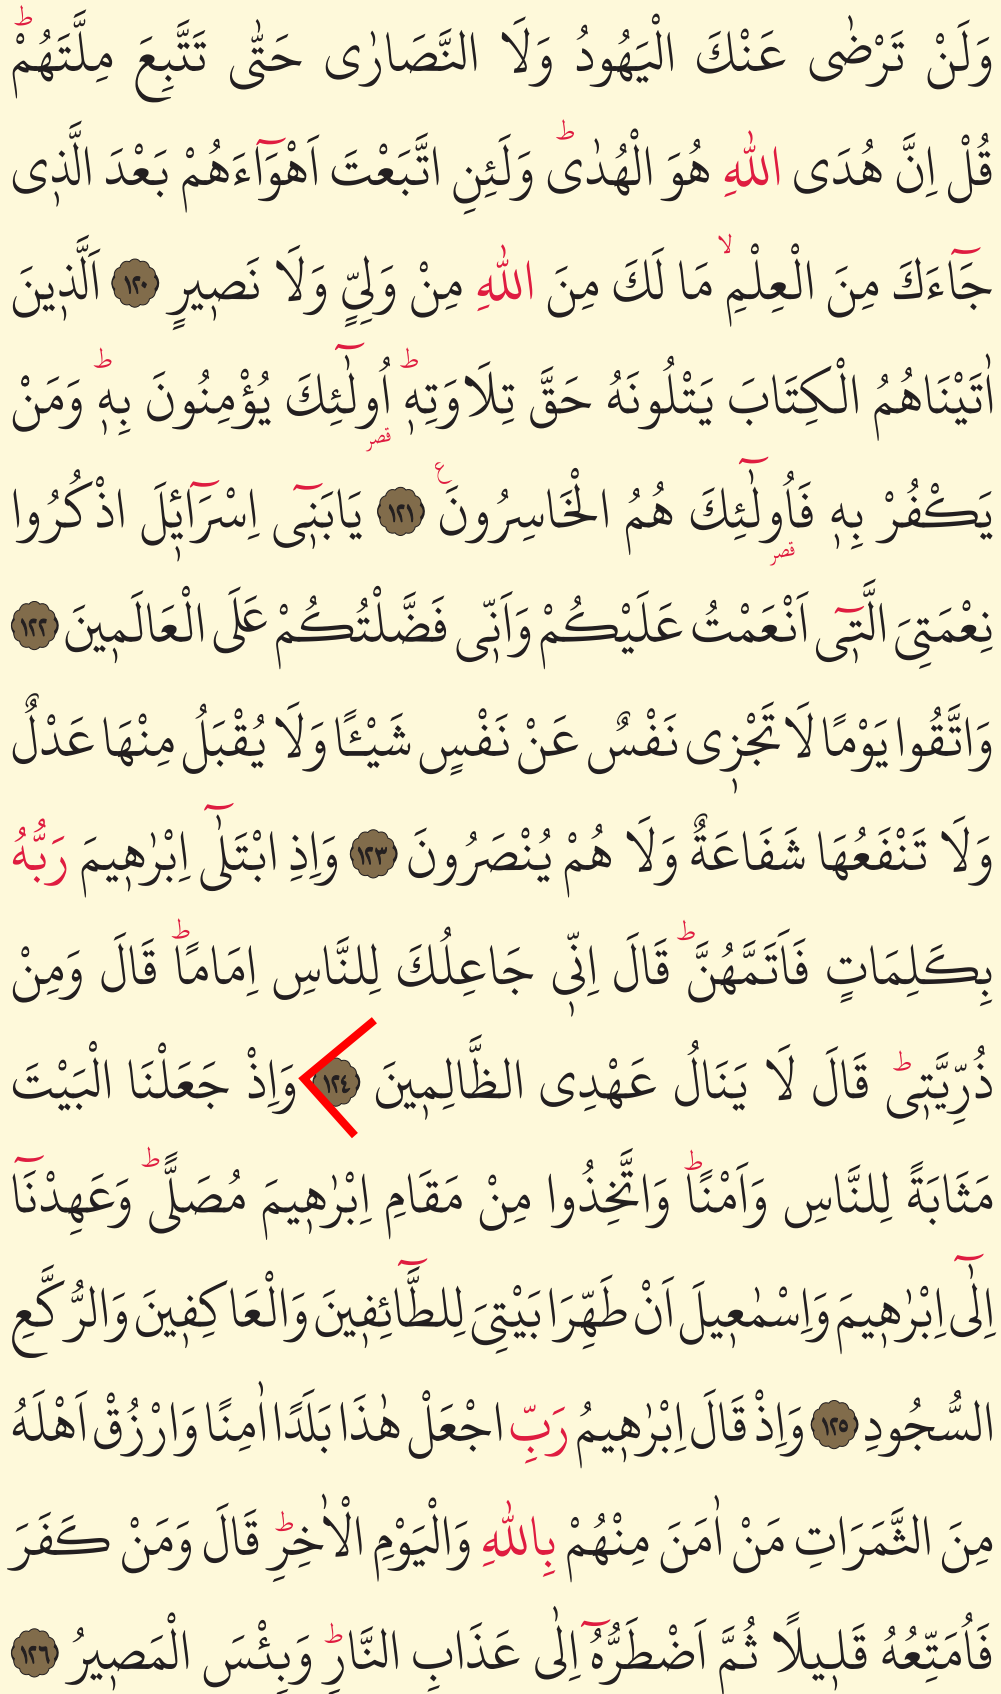 وَلَنْ تَرْضٰى عَنْكَ الْيَهُودُ وَلَا النَّصَارٰى حَتّٰى تَتَّبِعَ مِلَّتَهُمْۜ ط
قُلْ اِنَّ هُدَى اللّٰهِ هُوَ الْهُدٰىؕ وَلَئِنِ اتَّبَعْتَ اَهْوَٓاءَهُمْ بَعْدَ الَّذ۪ى
جَٓاءَكَ مِنَ الْعِلْمِۙ مَا لَكَ مِنَ اللّٰهِ مِنْ وَلِىٍّ وَلَا نَص۪يرٍ ﴿١٢٠﴾ اَلَّذ۪ينَ
اٰتَيْنَاهُمُ الْكِتَابَ يَتْلُونَهُ حَقَّ تِلَاوَتِه۪ؕ اُو۬لٰٓئِكَ يُؤْمِنُونَ بِه۪ؕ وَمَنْ
قصر
يَكْفُرْ بِه۪ فَاُو۬لٰٓئِكَ هُمُ الْخَاسِرُونَ ع ﴿١٢١﴾ يَابَن۪ٓى اِسْرَٓائ۪لَ اذْكُرُوا
قصر
نِعْمَتِىَ الَّت۪ٓى اَنْعَمْتُ عَلَيْكُمْ وَاَنّ۪ى فَضَّلْتُكُمْ عَلَى الْعَالَم۪ينَ ﴿١٢٢﴾
وَاتَّقُوا يَوْمًا لَا تَجْز۪ى نَفْسٌ عَنْ نَفْسٍ شَيْـًٔا وَلَا يُقْبَلُ مِنْهَا عَدْلٌ
وَلَا تَنْفَعُهَا شَفَاعَةٌ وَلَا هُمْ يُنْصَرُونَ ﴿١٢٣﴾ وَاِذِ ابْتَلٰٓى اِبْرٰه۪يمَ رَبُّهُ
بِكَلِمَاتٍ فَاَتَمَّهُنَّؕ قَالَ اِنّ۪ى جَاعِلُكَ لِلنَّاسِ اِمَامًاؕ قَالَ وَمِنْ
ذُرِّيَّت۪ىؕ قَالَ لَا يَنَالُ عَهْدِى الظَّالِم۪ينَ ﴿١٢٤﴾ وَاِذْ جَعَلْنَا الْبَيْتَ
مَثَابَةً لِلنَّاسِ وَاَمْنًاؕ وَاتَّخِذُوا مِنْ مَقَامِ اِبْرٰه۪يمَ مُصَلًّىؕ وَعَهِدْنَٓا
اِلٰٓى اِبْرٰه۪يمَ وَاِسْمٰع۪يلَ اَنْ طَهِّرَا بَيْتِىَ لِلطَّٓائِف۪ينَ وَالْعَاكِف۪ينَ وَالرُّكَّعِ
السُّجُودِ ﴿١٢٥﴾ وَاِذْ قَالَ اِبْرٰه۪يمُ رَبِّ اجْعَلْ هٰذَا بَلَدًا اٰمِنًا وَارْزُقْ اَهْلَهُ
مِنَ الثَّمَرَاتِ مَنْ اٰمَنَ مِنْهُمْ بِاللّٰهِ وَالْيَوْمِ الْاٰخِرِؕ قَالَ وَمَنْ كَفَرَ
فَاُمَتِّعُهُ قَل۪يلًا ثُمَّ اَضْطَرُّهُٓ اِلٰى عَذَابِ النَّارِؕ وَبِئْسَ الْمَص۪يرُ ﴿١٢٦﴾